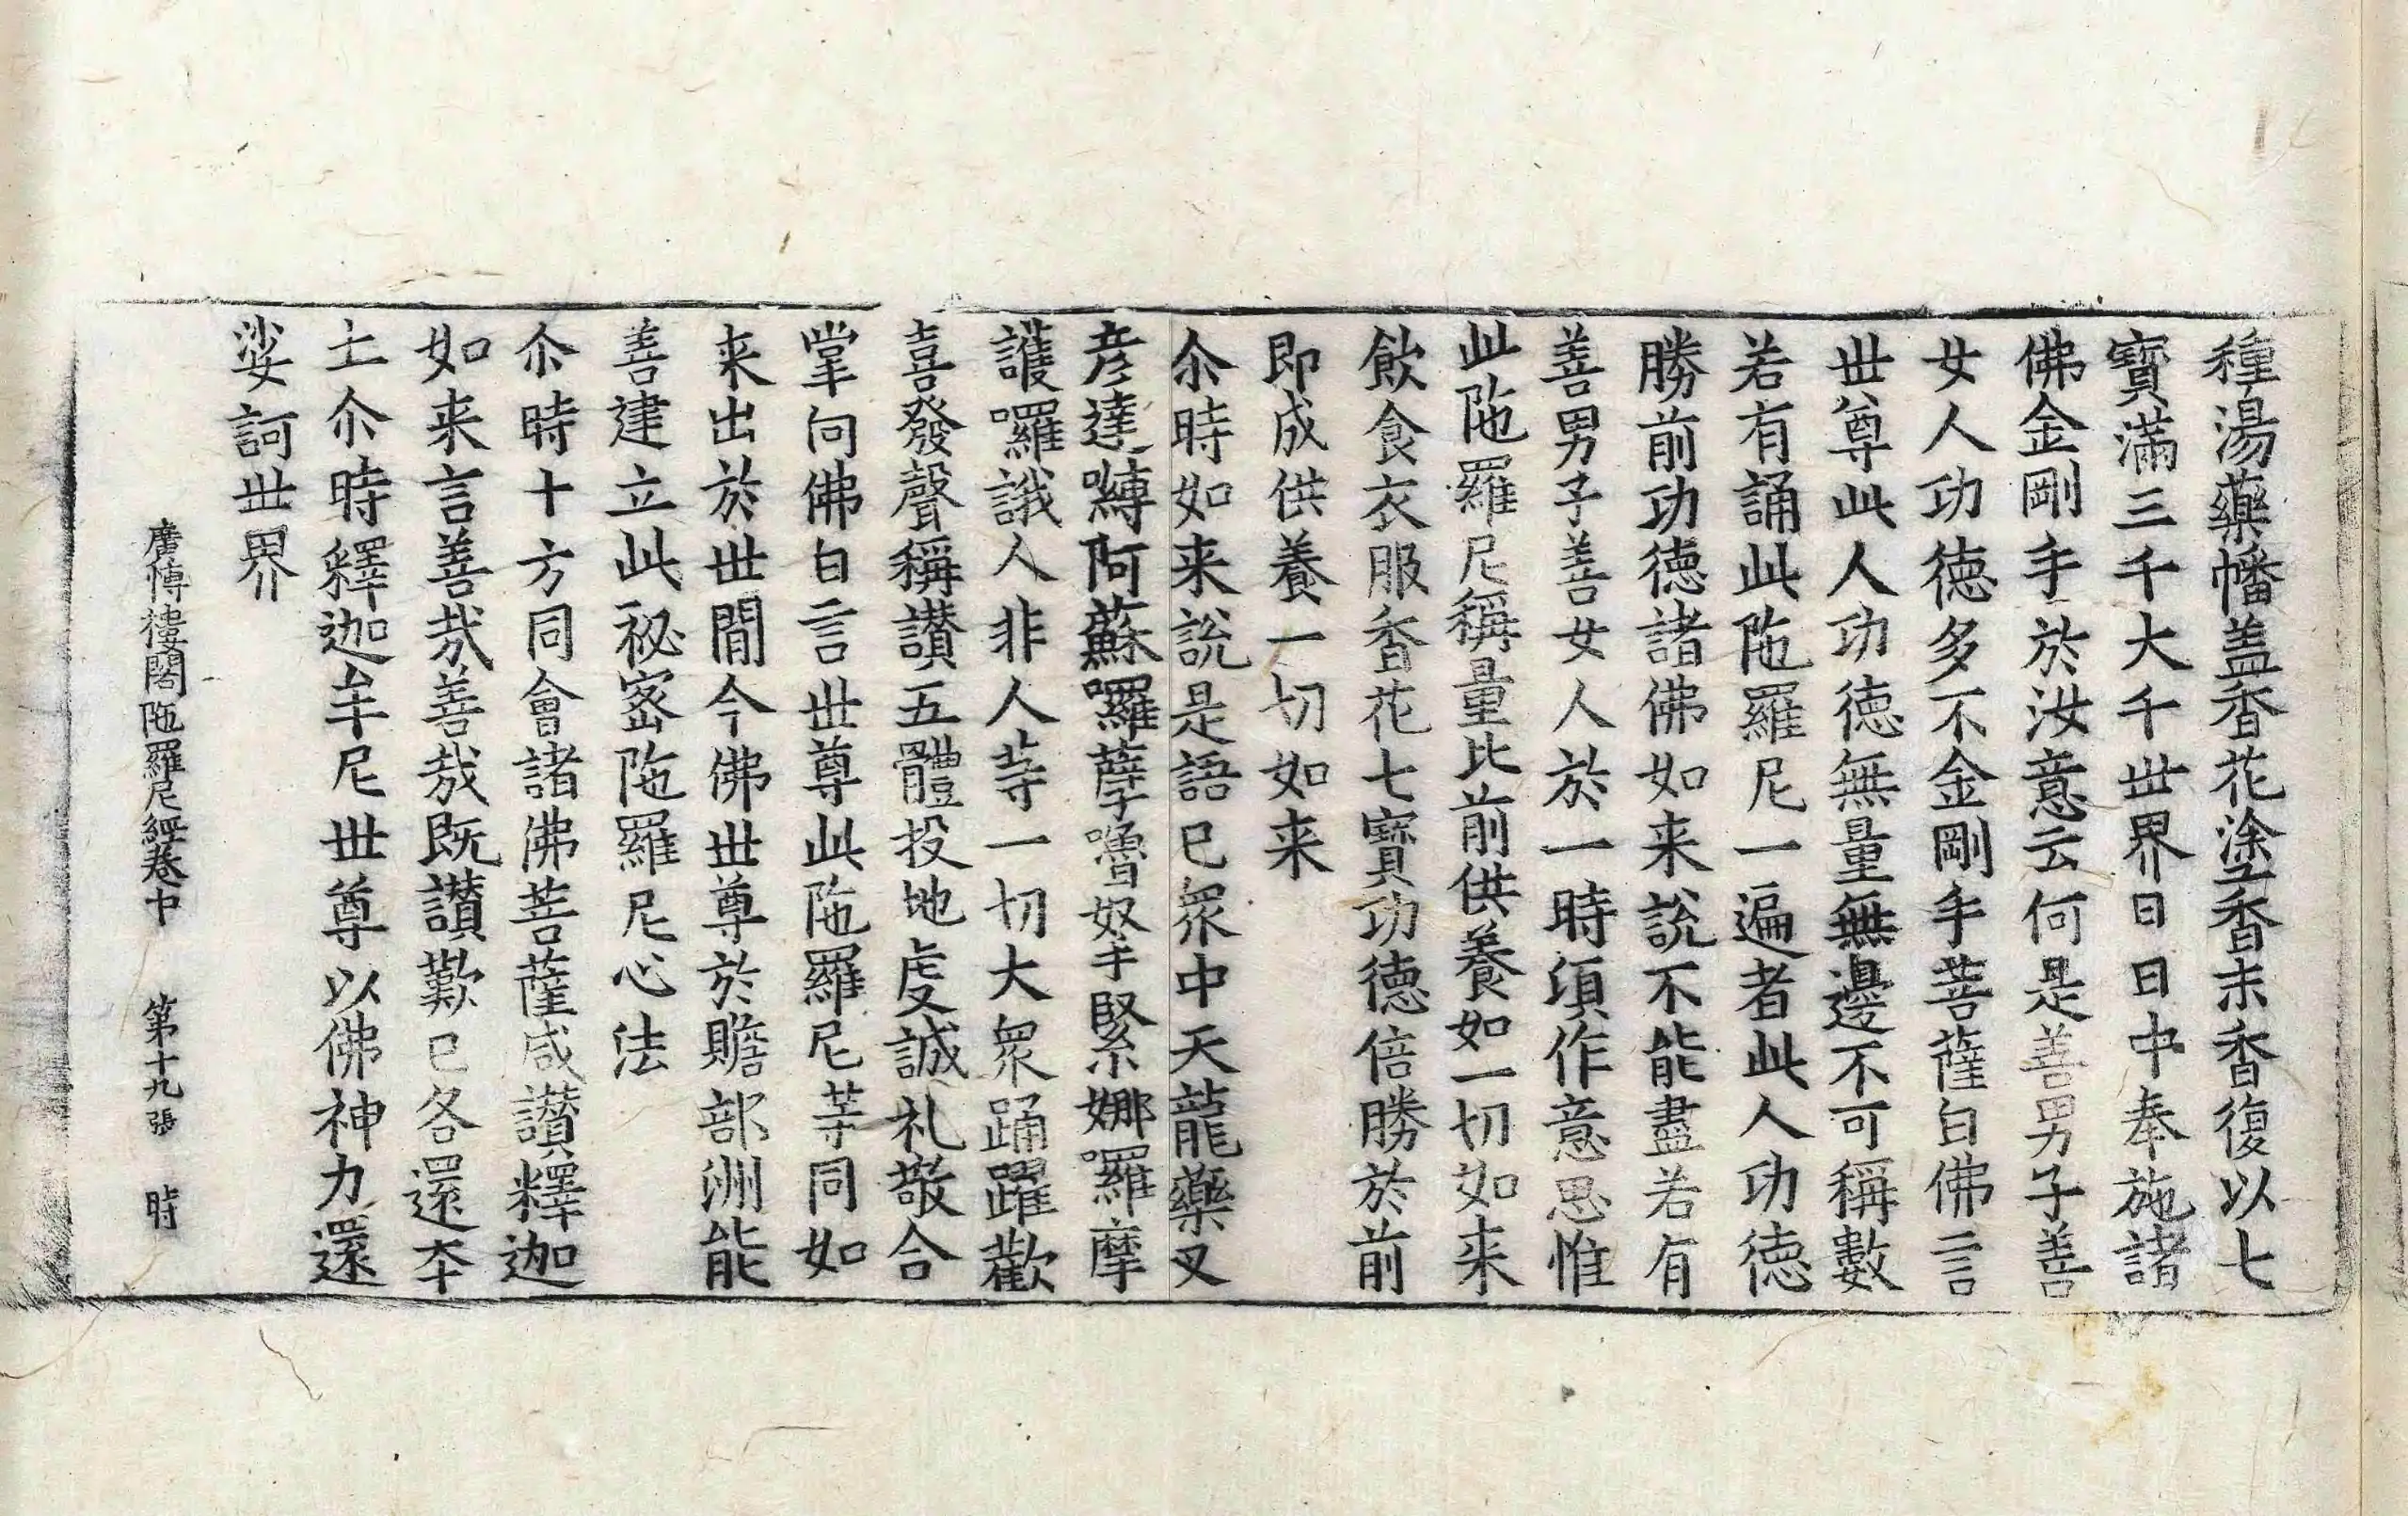 種湯藥幡盖香花塗香末香復以七
寳滿三千大千世界日日中奉施諸
佛金剛手於汝意云何是善男子善
女人功徳多不金剛手菩薩白佛言
世尊此人功徳無量無邊不可稱數
若有誦此陁羅尼一遍者此人功徳
勝前功徳諸佛如来説不能盡若有
善男子善女人於一時湏作意思惟
此陁羅尼稱量比前供養如一切如来
飲食衣服香花七寳功德倍勝於前
即成供養一切如来
尒時如来說是語已衆中天龍藥叉
彦達嚩阿蘇囉孽嚕拏緊娜囉摩
護囉誐人非人䓁一切大衆踊躍歡
喜發聲稱讃五體投地虔誠礼敬合
掌向佛白言世尊此陁羅尼䓁同如
来出於世間今佛世尊於贍部洲能
善建立此秘宻陁羅尼心法
尒時十方同會諸佛菩薩咸讃釋迦
如来言善哉善哉既讃歎已各還本
土尒時釋迦牟尼世尊以佛神力還
娑訶世界
廣博樓閣陁羅尼經卷中 第十九張 時